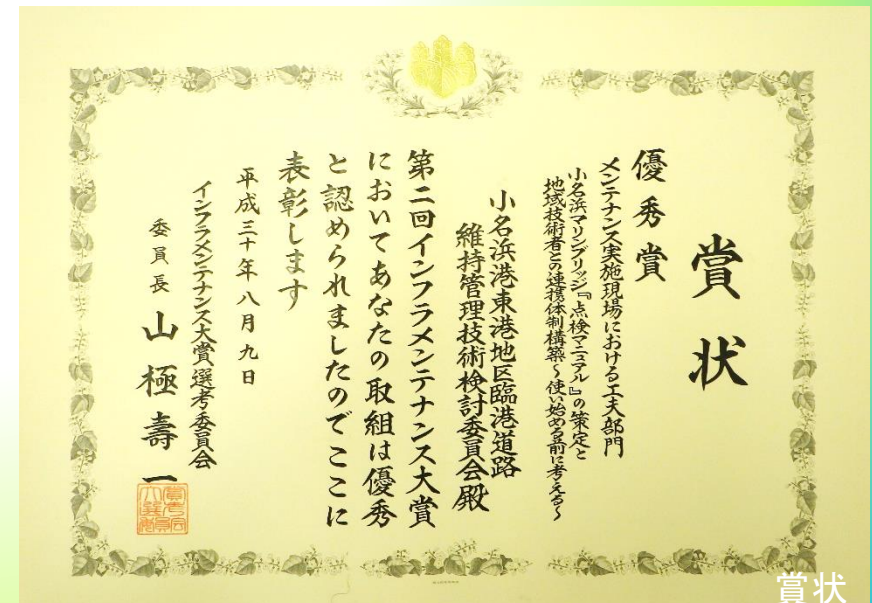 賞状
優秀賞
メンテナンス実施現場における工夫部門
小名浜マリンブリッジ『点検マニュアル』の策定と
地域技術者との連携体制構築～使い始める前に考える～
小名浜港東港地区臨港道路
維持管理技術検討委員会殿
第二回インフラメンテナンス大賞
においてあなたの取組は優秀
と認められましたのでここに
表彰します
平成三十年八月九日
インフラメンテナンス大賞選考委員会
委員長 山極壽一
賞状